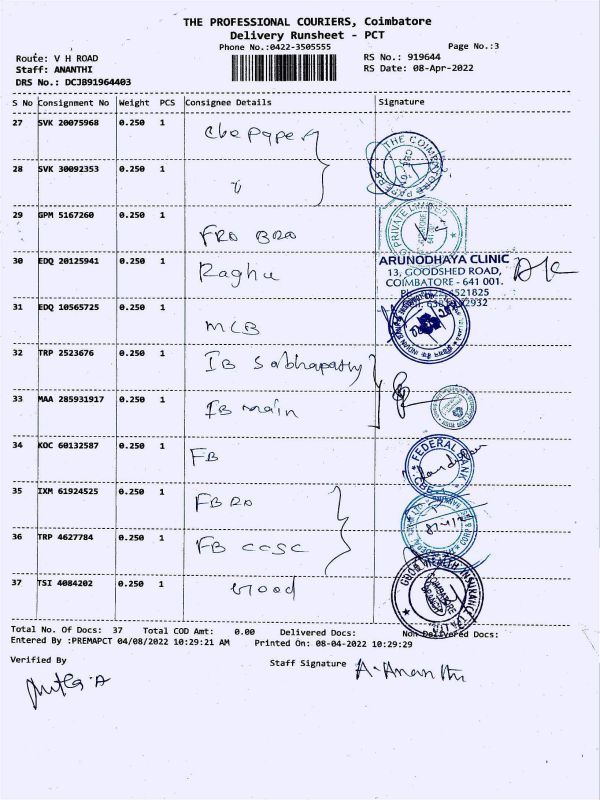 THE PROFESSIONAL COURIERS, Coimbatore
Delivery Runsheet - PCT
Phone No.:0422-3505555 Page No.:3
Route: V H ROAD RS No.: 919644
Staff: ANANTHI RS Date: 08-Apr-2022
DRS No.: DCJB91964403
S No Consignment No Weight PCS Consignee Details Signature
27 SVK 20075968 0.250 1 Cbe paper
28 SVK 30092353 0.250 1
THE COIMBATORE PAPERS
29 GPM 5167260 0.250 1 FRO BRO
PRIVATE LIMITED
30 EDQ 20125941 0.250 1 Raghu
ARUNODHAYA CLINIC
13, GOODSHED ROAD,
COIMBATORE - 641 001.
31 EDQ 10565725 0.250 1 MCB
32 TRP 2523676 0.250 1 IB Sabhapathy
33 MAA 285931917 0.250 1 IB main
34 KOC 60132587 0.250 1 FB
FEDERAL BANK
CBE
35 IXM 61924525 0.250 1 FB RO
36 TRP 4627784 0.250 1 FB CCSC
37 TSI 4084202 0.250 1
COIMBATORE
BRANCH
Total No. Of Docs: 37 Total COD Amt: 0.00 Delivered Docs: Non Delivered Docs:
Entered By :PREMAPCT 04/08/2022 10:29:21 AM Printed On: 08-04-2022 10:29:29
Verified By Staff Signature A. Ananthi